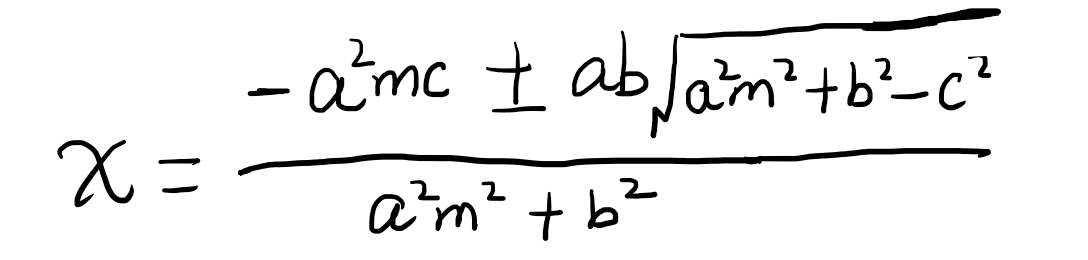 x = \frac{-a^2mc \pm ab\sqrt{a^2m^2+b^2-c^2}}{a^2m^2+b^2}